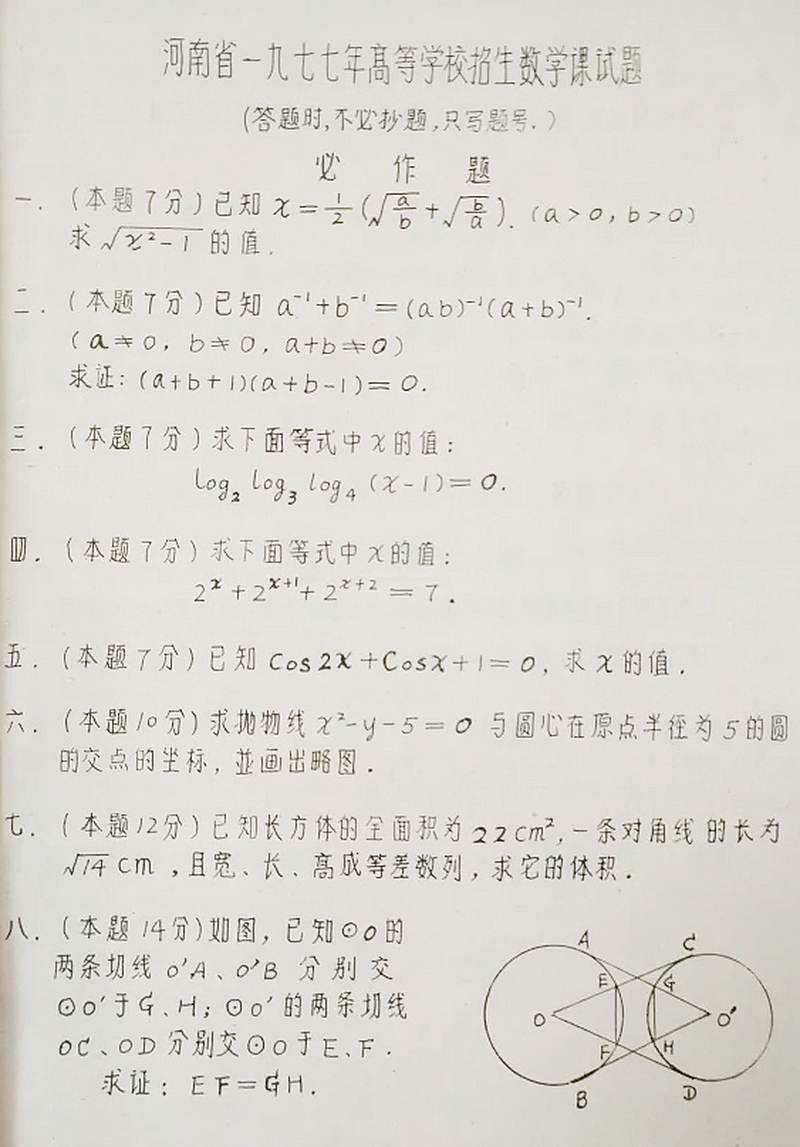 河南省一九七七年高等学校招生数学课试题
(答题时,不必抄题,只写题号.)
必 作 题
一. (本题7分)已知 x=1/2(√(a/b)+√(b/a)). (a>0, b>0)
求 √(x²-1) 的值.
二. (本题7分)已知 a⁻¹+b⁻¹=(ab)⁻¹(a+b)⁻¹.
(a≠0, b≠0, a+b≠0)
求证: (a+b+1)(a+b-1)=0.
三. (本题7分)求下面等式中x的值:
log₂ log₃ log₄ (x-1)=0.
四. (本题7分)求下面等式中x的值:
2ˣ+2ˣ⁺¹+2ˣ⁺²=7.
五. (本题7分)已知 Cos2x+Cosx+1=0, 求x的值.
六. (本题10分)求抛物线 x²-y-5=0 与圆心在原点半径为5的圆
的交点的坐标, 並画出略图.
七. (本题12分)已知长方体的全面积为22cm²,一条对角线的长为
√14 cm ,且宽、长、高成等差数列, 求它的体积.
八. (本题14分)如图, 已知⊙O的
两条切线 O'A、O'B 分别交
⊙O'于G、H; ⊙O'的两条切线
OC、OD 分别交⊙O于E、F.
求证: EF=GH.
A C
E G
O O'
F H
B D